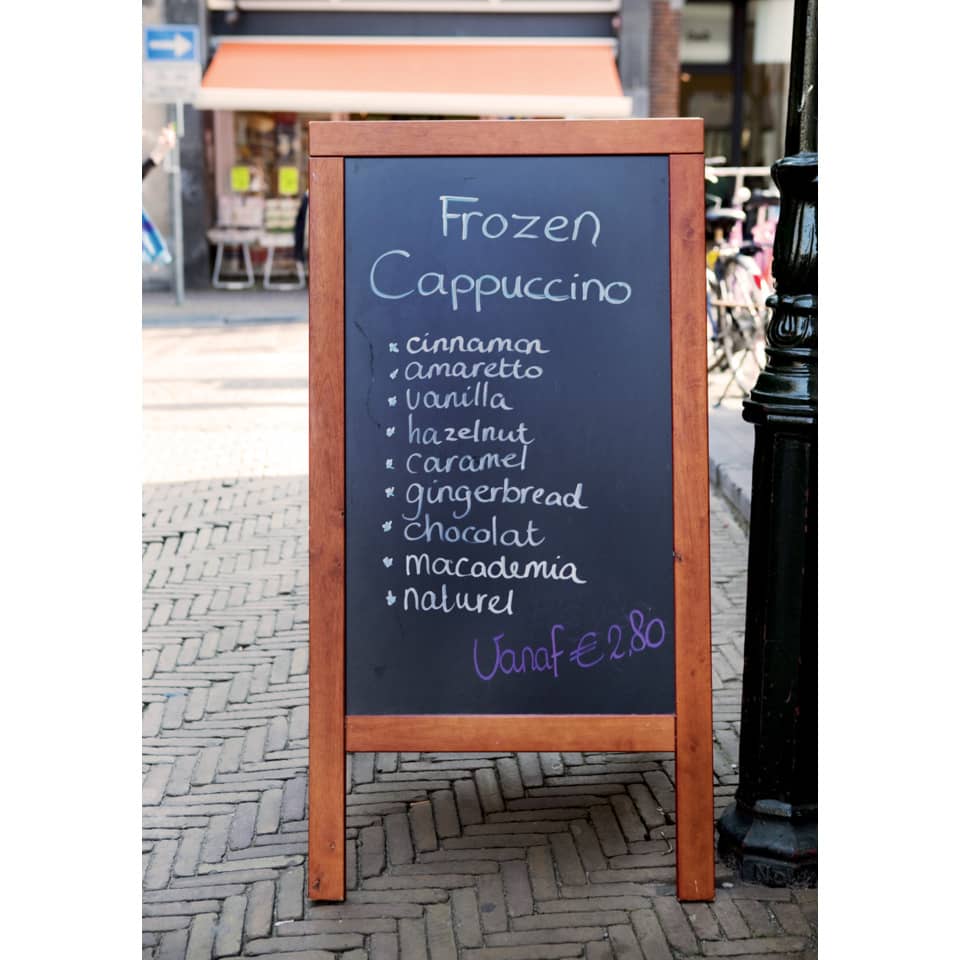 Frozen
Cappuccino
* cinnamon
* amaretto
* vanilla
* hazelnut
* caramel
* gingerbread
* chocolat
* macademia
* naturel
Vanaf € 2,80